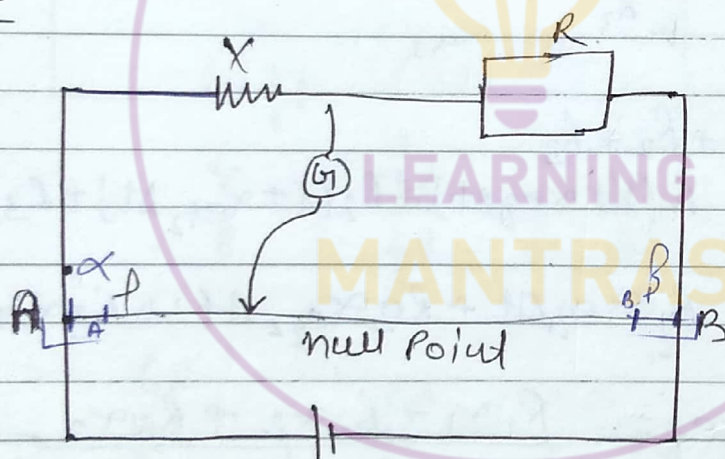 X
R
G
LEARNING
MANTRAS
α
β
A
A'
l
B'
B
null Point